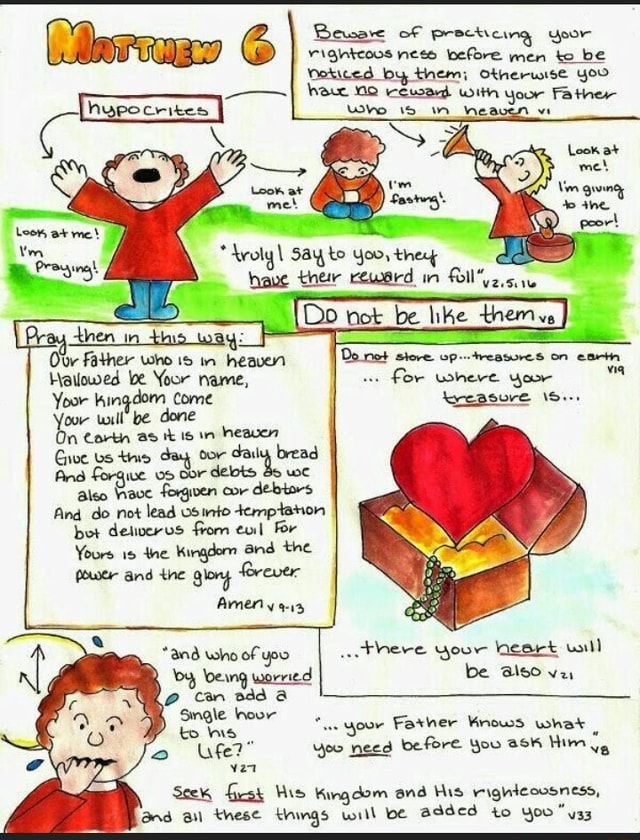 MATTHEW 6
Beware of practicing your
righteousness before men to be
noticed by them; otherwise you
have no reward with your Father
who is in heaven v1
hypocrites
Look at me!
I'm
Praying!
Look at
me!
I'm
fasting!
Look at
me!
I'm giving
to the
poor!
"truly I say to you, they
have their reward in full" v2,5,16
Do not be like them v8
Pray then in this way:
Our Father who is in heaven
Hallowed be Your name,
Your Kingdom Come
Your will be done
On Earth as it is in heaven
Give us this day our daily bread
And forgive us our debts as we
also have forgiven our debtors
And do not lead us into temptation
but deliver us from evil For
Yours is the Kingdom and the
power and the glory forever.
Amen v 9-13
Do not store up...treasures on earth
v19
... for where your
treasure is...
...there your heart will
be also v21
"and who of you
by being worried
can add a
Single hour
to his
Life?"
v27
"... your Father knows what
you need before you ask Him" v8
Seek first His Kingdom and His righteousness,
and all these things will be added to you" v33